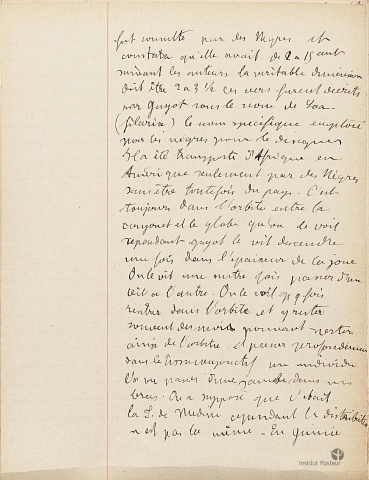 fut consulté par des Nègres et
constata qu'elle avait de 2 à 15 cent
suivant les auteurs la véritable dimension
doit être 2 à 3 ½ ces vers furent décrits
par Guyot sous le nom de Loa
(filaria) le nom spécifique employé
par les nègres pour le désigner
Il a été transporté d'Afrique en
Amérique seulement par des Nègres
sans être toutefois du pays. C'est
toujours dans l'orbite entre la
conjonct et le globe qu'on le voit
cependant Guyot le vit descendre
une fois dans l'épaisseur de la joue
On le vit une autre fois passer d'un
œil à l'autre. On le voit qq fois
rentrer dans l'orbite et y rester
souvent des mois pouvant sortir
ainsi de l'orbite et passer profondément
dans le tissu conjonctif un individu
l'a vu passer dans
bras. On a supposé que c'était
la F. de Médine cependant la distribution
n'est pas la même - En Guinée
Institut Pasteur